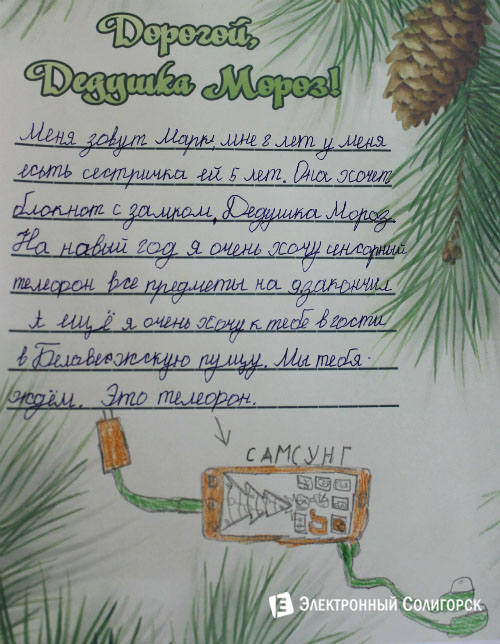 Дорогой,
Дедушка Мороз!
Меня зовут Марк, мне 8 лет у меня
есьть сестричка ей 5 лет. Она хочет
блокнот с замком, Дедушка Мороз
На навый год я очень хочу сенсорный
телефон все предметы на 9 закончил
А ещё я очень хочу к тебе в гости
в Белавежскую пущу. Мы тебя
ждём. Это телефон.
САМСУНГ
Е Электронный Солигорск